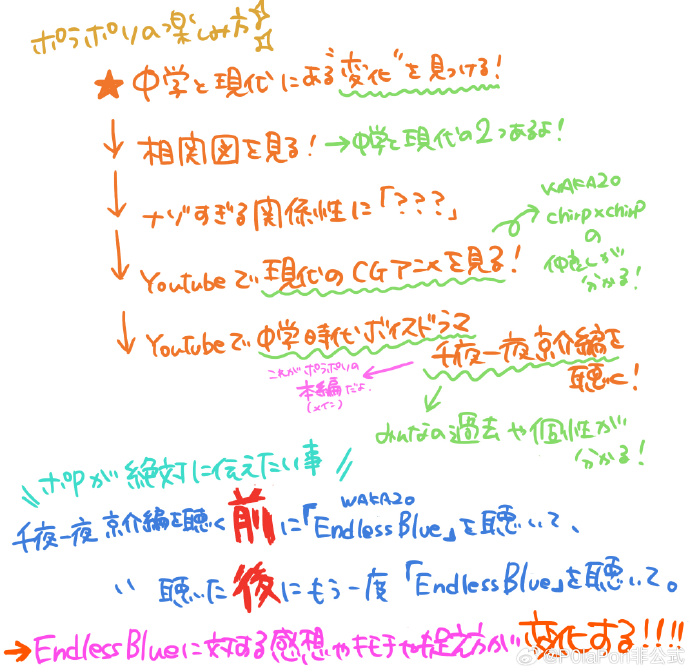 ポラポリの楽しみ方!
★ 中学と現代にある"変化"を見つける!
↓ 相関図を見る! →中学と現代の2つあるよ!
↓ ナゾすぎる関係性に「???」
↓ Youtubeで現代のCGアニメを見る!
WAKAZO
chirp×chirp
の
仲良しが
分かる!
↓ Youtubeで中学時代ボイスドラマ
千夜一夜 京介編を
聴く!
これがポラポリの
本編だよ.
(メイン)
みんなの過去や個性が
分かる!
\\ ポPが絶対に伝えたい事 //
WAKAZO
千夜一夜 京介編を聴く前に「Endless Blue」を聴いて、
〃 聴いた後にもう一度「Endless Blue」を聴いて。
→Endless Blueに対する感想やキモチや捉え方が変化する!!!!
@POlaPori非公式